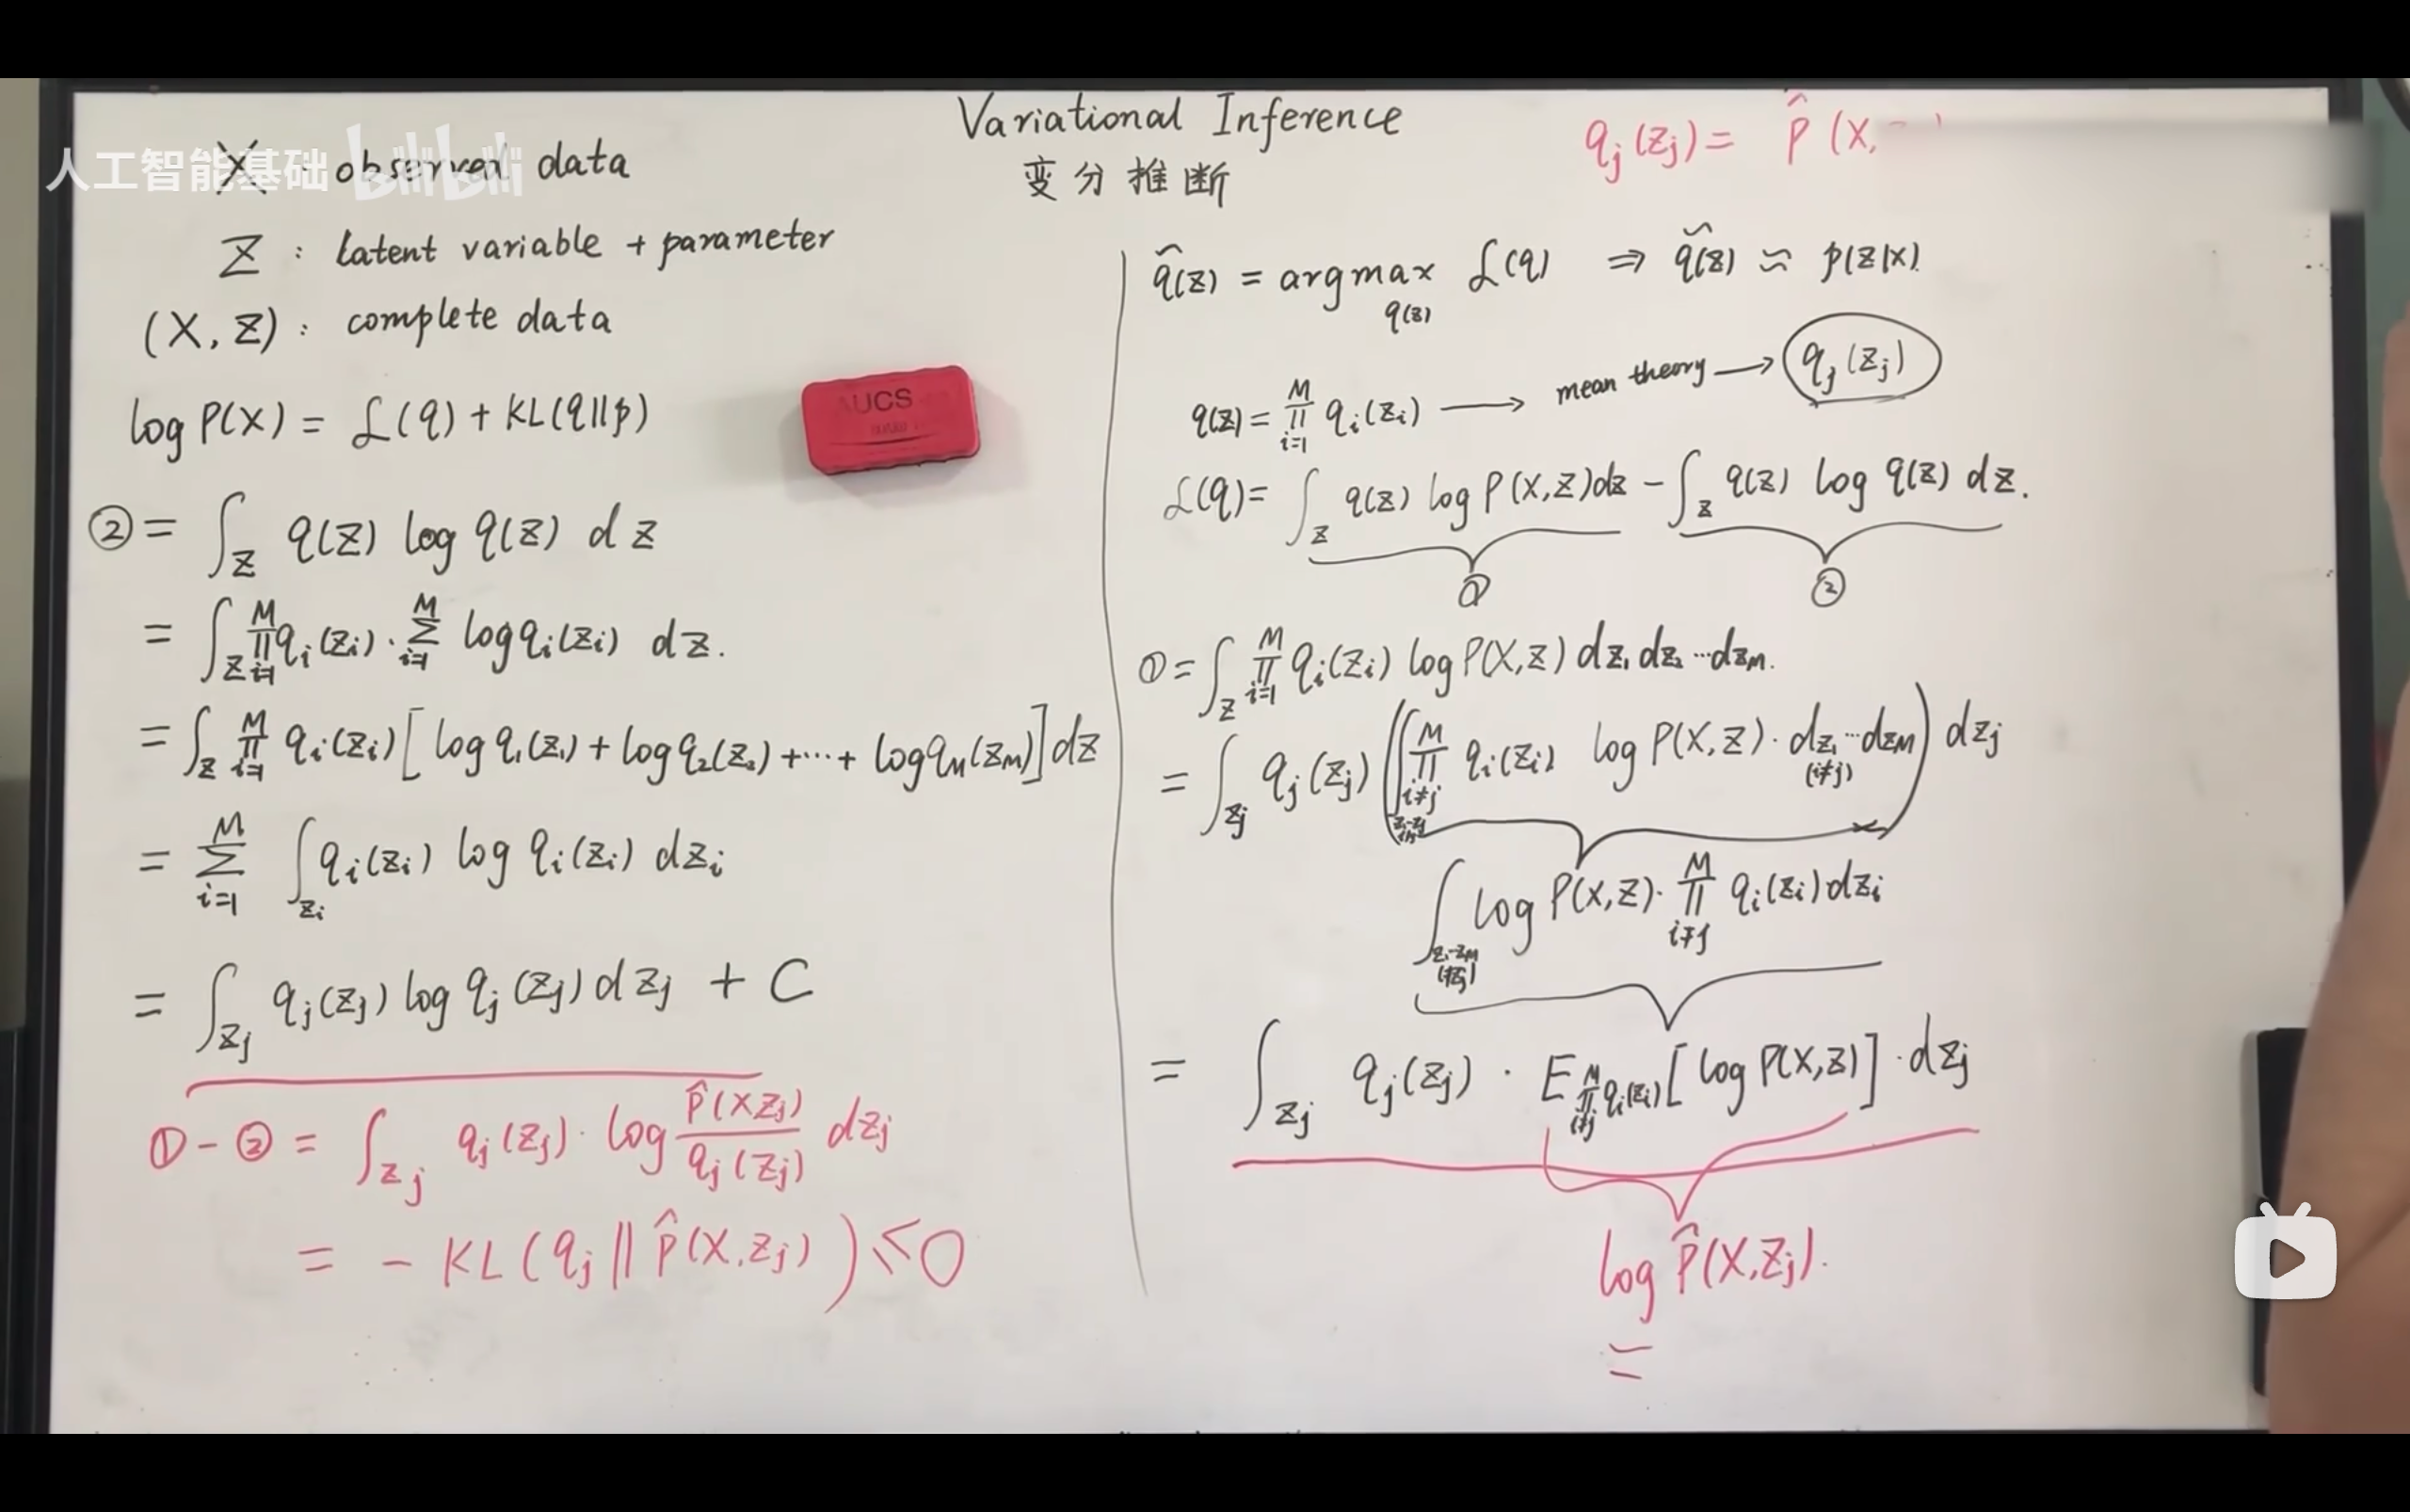 Variational Inference
变分推断
人工智能基础 bilibili
X : observed data
Z : latent variable + parameter
(X, Z) : complete data
log P(X) = ℒ(q) + KL(q||p)
② = ∫_Z q(Z) log q(Z) dZ
= ∫_Z ∏_{i=1}^{M} q_i(z_i) · ∑_{i=1}^{M} log q_i(z_i) dz.
= ∫_Z ∏_{i=1}^{M} q_i(z_i) [log q_1(z_1) + log q_2(z_2) + ··· + log q_M(z_M)] dz
= ∑_{i=1}^{M} ∫_{z_i} q_i(z_i) log q_i(z_i) dz_i
= ∫_{z_j} q_j(z_j) log q_j(z_j) dz_j + C
① - ② = ∫_{z_j} q_j(z_j) · log \frac{p̂(X z_j)}{q_j(z_j)} dz_j
= - KL(q_j || p̂(X, z_j)) ≤ 0
AUCS
q_j(z_j) = p̂(X,
q̂(z) = argmax_{q(z)} ℒ(q) ⇒ q̂(z) ≈ p(z|x).
q(z) = ∏_{i=1}^{M} q_i(z_i) → mean theory → q_j(z_j)
ℒ(q) = ∫_Z q(z) log P(X,Z)dz - ∫_Z q(z) log q(z) dz.
① ②
① = ∫_Z ∏_{i=1}^{M} q_i(z_i) log P(X,Z) dz_1 dz_2 ··· dz_M.
= ∫_{z_j} q_j(z_j) (∫ ∏_{i≠j}^{M} q_i(z_i) log P(X,Z) · dz_1 ··· dz_M (i≠j)) dz_j
∫_{z_1-z_M (≠z_j)} log P(X,Z) · ∏_{i≠j}^{M} q_i(z_i) dz_i
= ∫_{z_j} q_j(z_j) · E_{∏_{i≠j}^{M} q_i(z_i)} [log P(X,z)] · dz_j
log p̂(X, z_j).
=